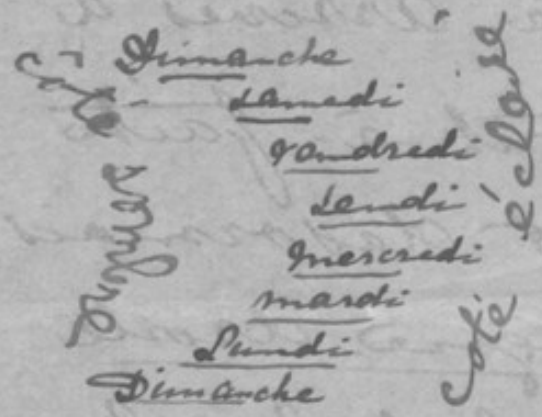 Côté
Dimanche
samedi
vandredi
Jeudi
mercredi
mardi
Lundi
Dimanche
côté éclairé